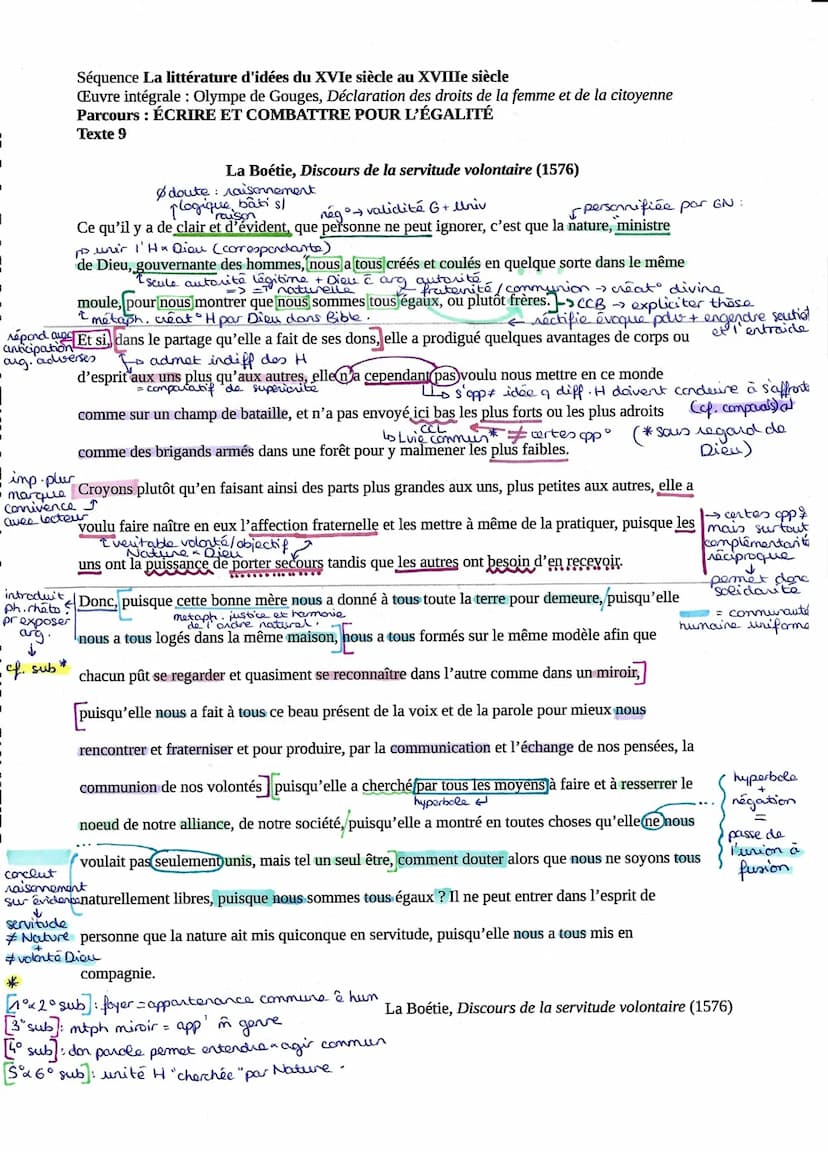 Séquence La littérature d'idées du XVIe siècle au XVIIIe siècle
Œuvre intégrale : Olympe de Gouges, Déclaration des droits de la femme et de la citoyenne
Parcours : ÉCRIRE ET COMBATTRE POUR L'ÉGALITÉ
Texte 9
La Boétie, Discours de la servitude volontaire (1576)
∅ doute : raisonnement
logique, bâti s/
raison
nég° → validité G + Univ
personnifiée par GN :
Ce qu'il y a de clair et d'évident, que personne ne peut ignorer, c'est que la nature, ministre
unir l'H Dieu (correspondante)
de Dieu, gouvernante des hommes, nous a tous créés et coulés en quelque sorte dans le même
seule autorité légitime + Dieu arg autorité
=> = naturelle
fraternité / communion → créat° divine
moule, pour nous montrer que nous sommes tous égaux, ou plutôt frères. → CCB → expliciter thèse
métaph. créat° H par Dieu dans Bible.
← rectifie évoque pdv + engendre soutien
et l'entraide
répond aux
anticipation
arg. adverses
Et si, dans le partage qu'elle a fait de ses dons, elle a prodigué quelques avantages de corps ou
→ admet indiff des H
d'esprit aux uns plus qu'aux autres, elle n'a cependant pas voulu nous mettre en ce monde
= comparatif de supériorité
s'opp ≠ idée q diff. H doivent conduire à s'affronter
comme sur un champ de bataille, et n'a pas envoyé ici bas les plus forts ou les plus adroits
(cf. comparais)
CCL
Lvie commun* ≠ certes opp°
(* sous regard de
Dieu)
comme des brigands armés dans une forêt pour y malmener les plus faibles.
imp. plur
marque
connivence
avec lecteur
Croyons plutôt qu'en faisant ainsi des parts plus grandes aux uns, plus petites aux autres, elle a
voulu faire naître en eux l'affection fraternelle et les mettre à même de la pratiquer, puisque les
véritable volonté/objectif
Nature Dieu
uns ont la puissance de porter secours tandis que les autres ont besoin d'en recevoir.
→ certes opp
mais surtout
complémentarité
réciproque
permet donc
solidarité
introduit
ph. rhéto
pr exposer
arg.
cf. sub*
Donc, puisque cette bonne mère nous a donné à tous toute la terre pour demeure, puisqu'elle
metaph. justice et harmonie
de l'ordre naturel.
= communauté
humaine uniforme
nous a tous logés dans la même maison, nous a tous formés sur le même modèle afin que
chacun pût se regarder et quasiment se reconnaître dans l'autre comme dans un miroir,
puisqu'elle nous a fait à tous ce beau présent de la voix et de la parole pour mieux nous
rencontrer et fraterniser et pour produire, par la communication et l'échange de nos pensées, la
communion de nos volontés puisqu'elle a cherché par tous les moyens à faire et à resserrer le
hyperbole
noeud de notre alliance, de notre société, puisqu'elle a montré en toutes choses qu'elle ne nous
hyperbole
+
négation
=
passe de
l'union à
fusion
voulait pas seulement unis, mais tel un seul être, comment douter alors que nous ne soyons tous
conclut
raisonnement
sur évidence
naturellement libres, puisque nous sommes tous égaux ? Il ne peut entrer dans l'esprit de
servitude
≠ Nature
+
≠ volonté Dieu
personne que la nature ait mis quiconque en servitude, puisqu'elle nous a tous mis en
compagnie.
*
[1° 2° sub] : foyer = appartenance commune ê hum
La Boétie, Discours de la servitude volontaire (1576)
[3° sub] : mtph miroir = app' m̂ genre
[4° sub] : don parole permet entendre agir commun
[5° 6° sub] : unité H "cherchée" par Nature.